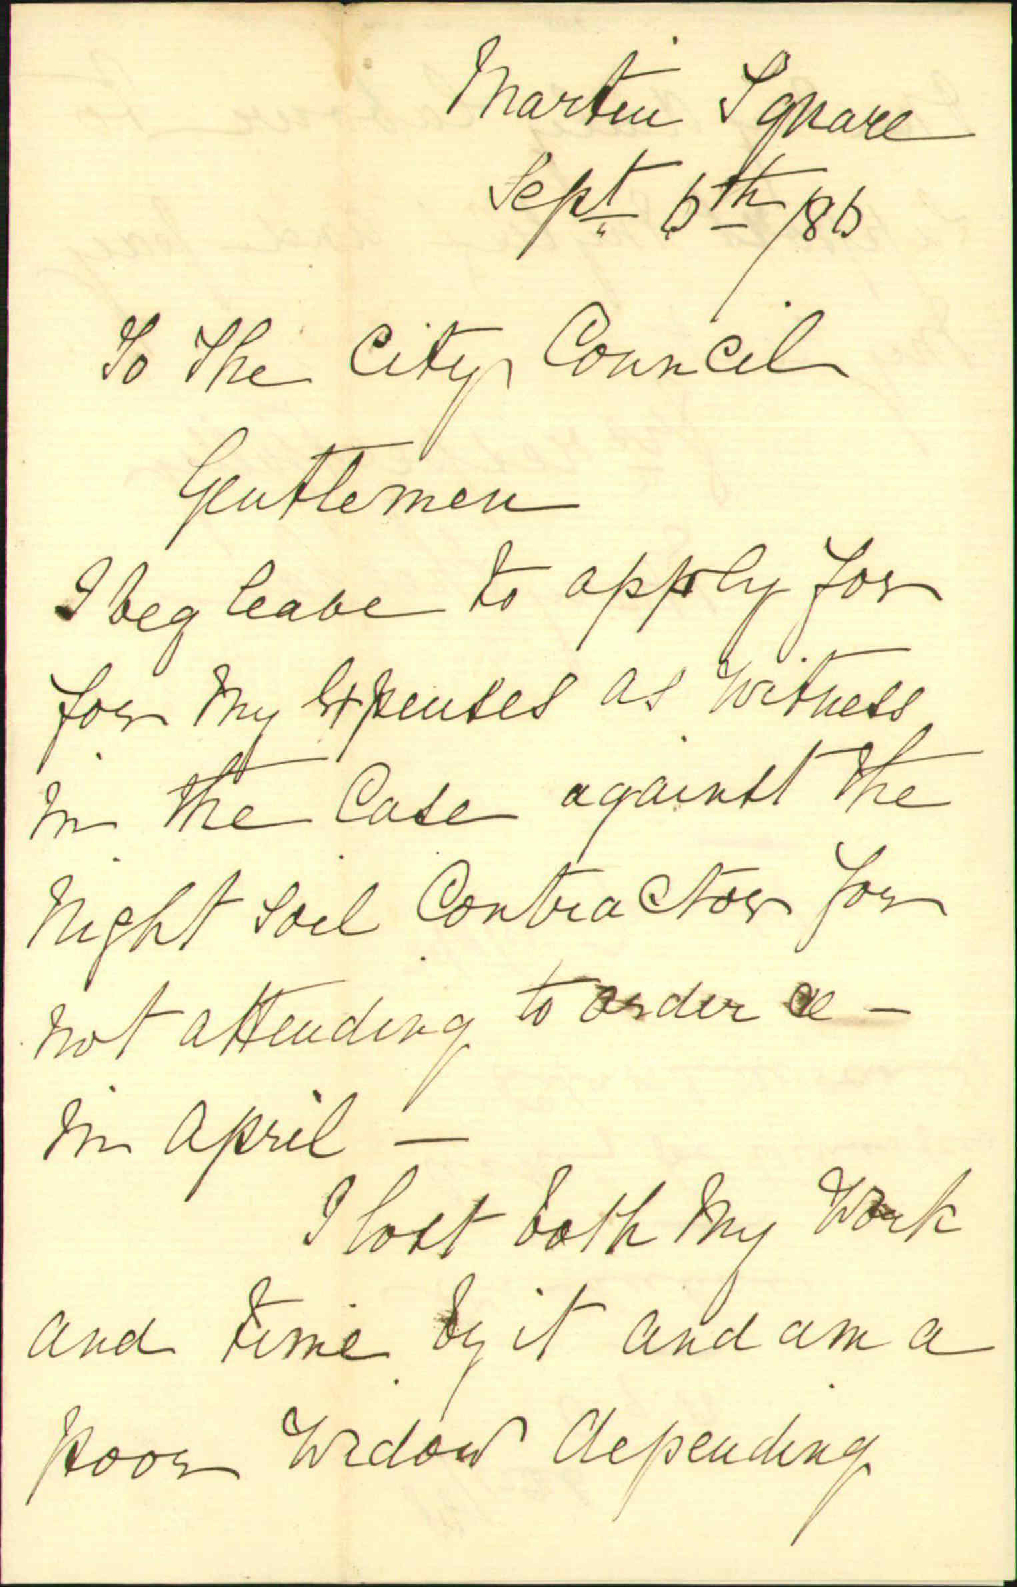 Martin Square
Sept 6th /86
To The City Council
Gentlemen
I beg leave to apply for
for My Expenses as Witness
in the Case against the
Night Soil Contractor for
not attending to order a —
in April —
I lost both My Work
and time by it and am a
poor Widow depending